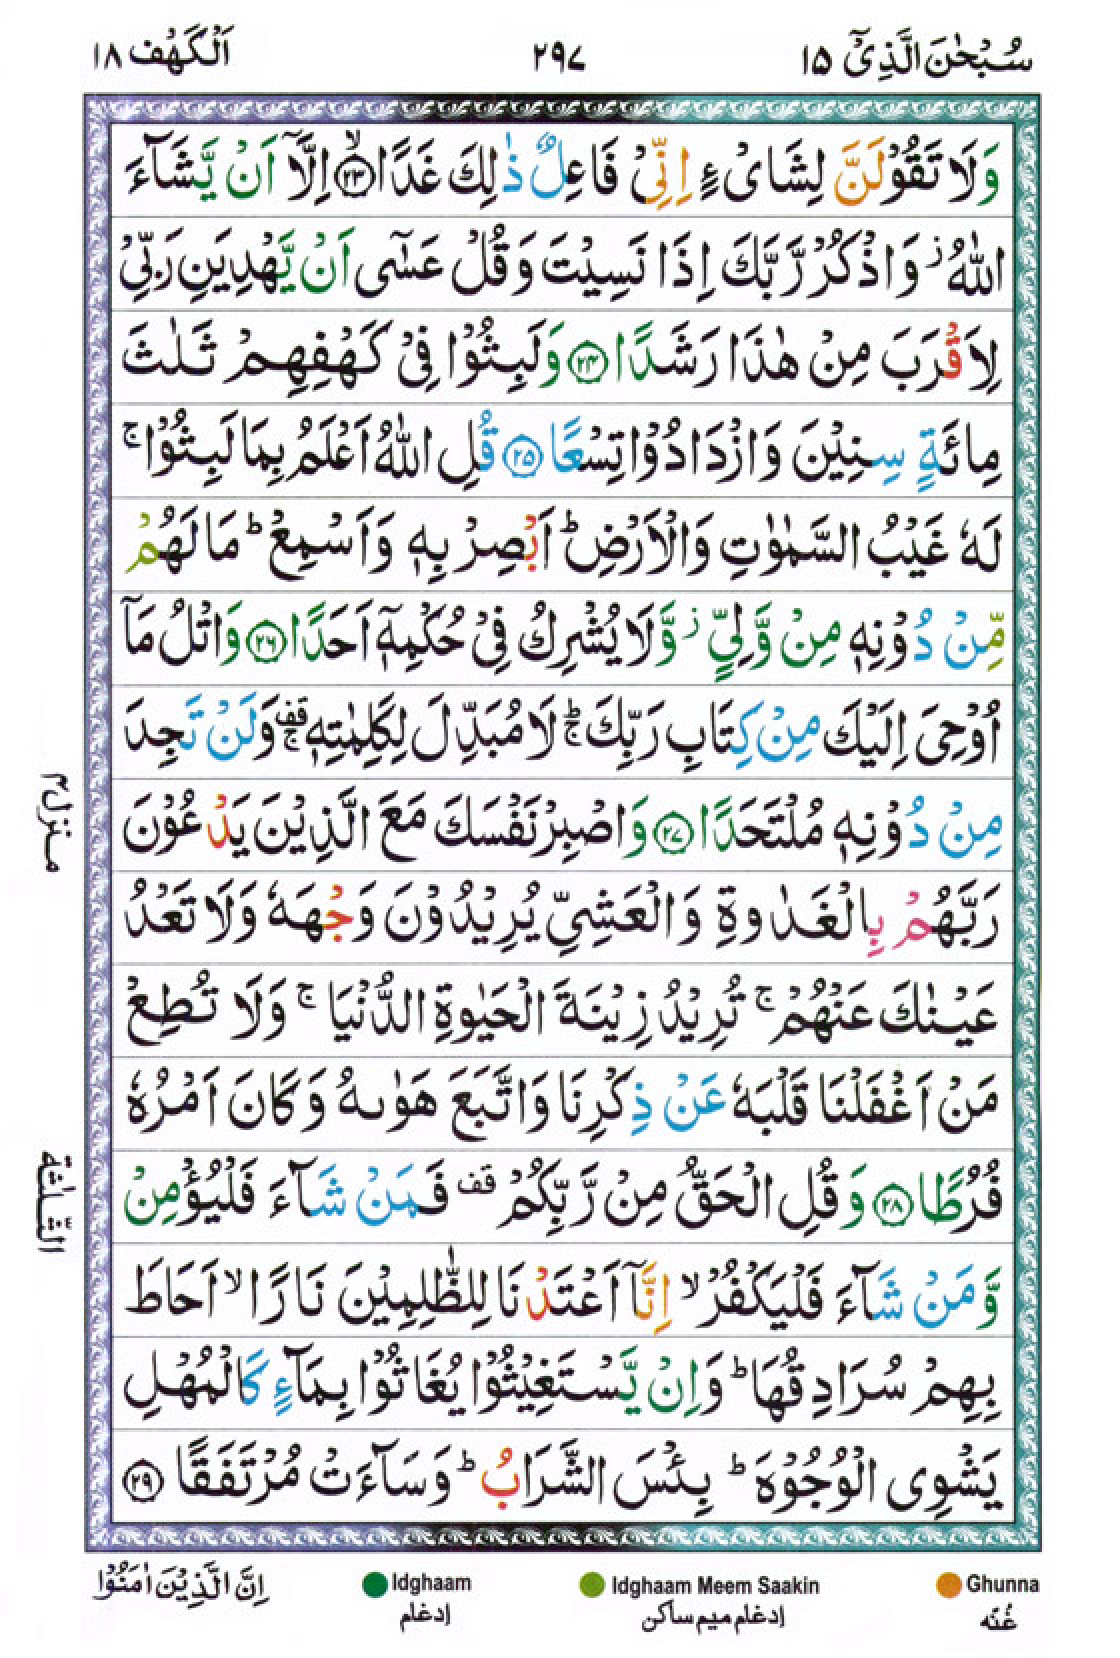 سُبْحٰنَ الَّذِیْۤ ١٥
٢٩٧
اَلْكَهْف ١٨
وَلَا تَقُوْلَنَّ لِشَایْءٍ اِنِّیْ فَاعِلٌ ذٰلِكَ غَدًا ۙ﴿٢٣﴾ اِلَّاۤ اَنْ یَّشَآءَ
اللّٰهُ ؗ وَاذْكُرْ رَّبَّكَ اِذَا نَسِیْتَ وَقُلْ عَسٰۤی اَنْ یَّهْدِیَنِ رَبِّیْ
لِاَقْرَبَ مِنْ هٰذَا رَشَدًا ﴿٢٤﴾ وَلَبِثُوْا فِیْ كَهْفِهِمْ ثَلٰثَ
مِائَةٍ سِنِیْنَ وَازْدَادُوْا تِسْعًا ﴿٢٥﴾ قُلِ اللّٰهُ اَعْلَمُ بِمَا لَبِثُوْا ۚ
لَهٗ غَیْبُ السَّمٰوٰتِ وَالْاَرْضِ ؕ اَبْصِرْ بِهٖ وَاَسْمِعْ ؕ مَا لَهُمْ
مِّنْ دُوْنِهٖ مِنْ وَّلِیٍّ ؗ وَّلَا یُشْرِكُ فِیْ حُكْمِهٖۤ اَحَدًا ﴿٢٦﴾ وَاتْلُ مَاۤ
اُوْحِیَ اِلَیْكَ مِنْ كِتَابِ رَبِّكَ ؕۚ لَا مُبَدِّلَ لِكَلِمٰتِهٖ ۚقف وَلَنْ تَجِدَ
مِنْ دُوْنِهٖ مُلْتَحَدًا ﴿٢٧﴾ وَاصْبِرْ نَفْسَكَ مَعَ الَّذِیْنَ یَدْعُوْنَ
رَبَّهُمْ بِالْغَدٰوةِ وَالْعَشِیِّ یُرِیْدُوْنَ وَجْهَهٗ وَلَا تَعْدُ
عَیْنٰكَ عَنْهُمْ ۚ تُرِیْدُ زِیْنَةَ الْحَیٰوةِ الدُّنْیَا ۚ وَلَا تُطِعْ
مَنْ اَغْفَلْنَا قَلْبَهٗ عَنْ ذِكْرِنَا وَاتَّبَعَ هَوٰىهُ وَكَانَ اَمْرُهٗ
فُرُطًا ﴿٢٨﴾ وَقُلِ الْحَقُّ مِنْ رَّبِّكُمْ قف فَمَنْ شَآءَ فَلْیُؤْمِنْ
وَّمَنْ شَآءَ فَلْیَكْفُرْ ۙ اِنَّاۤ اَعْتَدْنَا لِلظّٰلِمِیْنَ نَارًا ۙ اَحَاطَ
بِهِمْ سُرَادِقُهَا ؕ وَاِنْ یَّسْتَغِیْثُوْا یُغَاثُوْا بِمَآءٍ كَالْمُهْلِ
یَشْوِی الْوُجُوْهَ ؕ بِئْسَ الشَّرَابُ ؕ وَسَآءَتْ مُرْتَفَقًا ﴿٢٩﴾
منزل ٤
الثلٰثة
Ghunna
غُنّه
Idghaam Meem Saakin
إدغام ميم ساكن
Idghaam
إدغام
اِنَّ الَّذِیْنَ اٰمَنُوْا